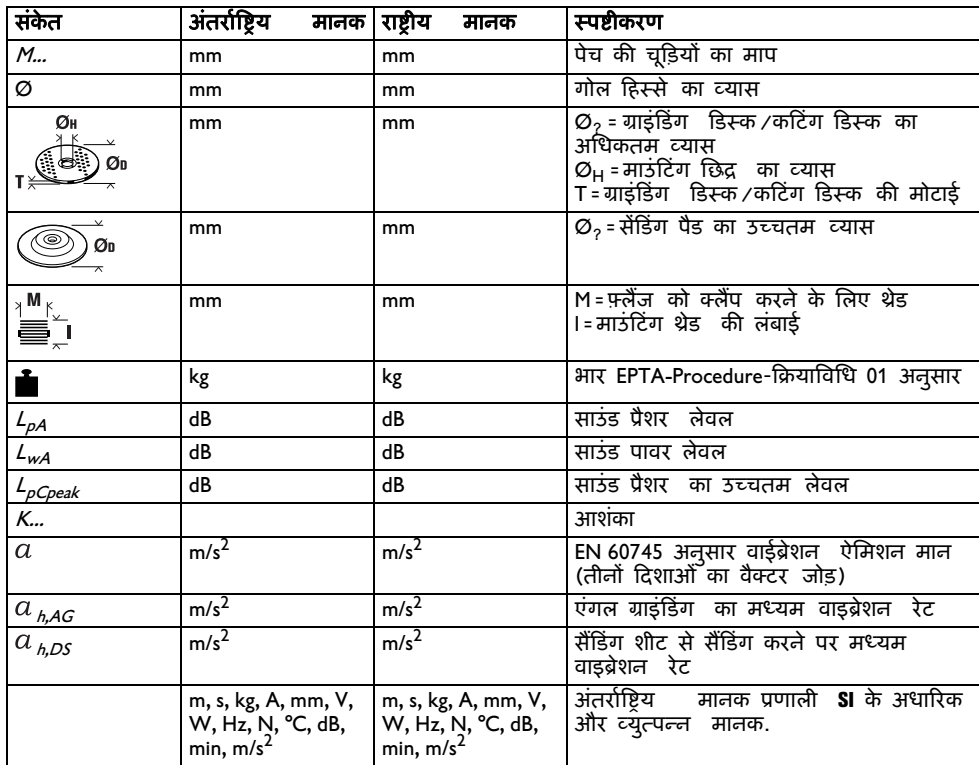 संकेत अंतर्राष्ट्रिय मानक राष्ट्रीय मानक स्पष्टीकरण
M... mm mm पेच की चूड़ियों का माप
Ø mm mm गोल हिस्से का व्यास
ØH ØD T mm mm Ø? = ग्राइंडिंग डिस्क /कटिंग डिस्क का
अधिकतम व्यास
ØH = माउंटिंग छिद्र का व्यास
T = ग्राइंडिंग डिस्क /कटिंग डिस्क की मोटाई
ØD mm mm Ø? = सेंडिंग पैड का उच्चतम व्यास
M l mm mm M = फ़्लैंज को क्लैंप करने के लिए थ्रेड
l = माउंटिंग थ्रेड की लंबाई
kg kg भार EPTA-Procedure-क्रियाविधि 01 अनुसार
LpA dB dB साउंड प्रैशर लेवल
LwA dB dB साउंड पावर लेवल
LpCpeak dB dB साउंड प्रैशर का उच्चतम लेवल
K... आशंका
a m/s² m/s² EN 60745 अनुसार वाईब्रेशन ऐमिशन मान
(तीनों दिशाओं का वैक्टर जोड़)
a h,AG m/s² m/s² एंगल ग्राइंडिंग का मध्यम वाइब्रेशन रेट
a h,DS m/s² m/s² सैंडिंग शीट से सैंडिंग करने पर मध्यम
वाइब्रेशन रेट
m, s, kg, A, mm, V, m, s, kg, A, mm, V, अंतर्राष्ट्रिय मानक प्रणाली SI के अधारिक
W, Hz, N, °C, dB, W, Hz, N, °C, dB, और व्युत्पन्न मानक.
min, m/s² min, m/s²